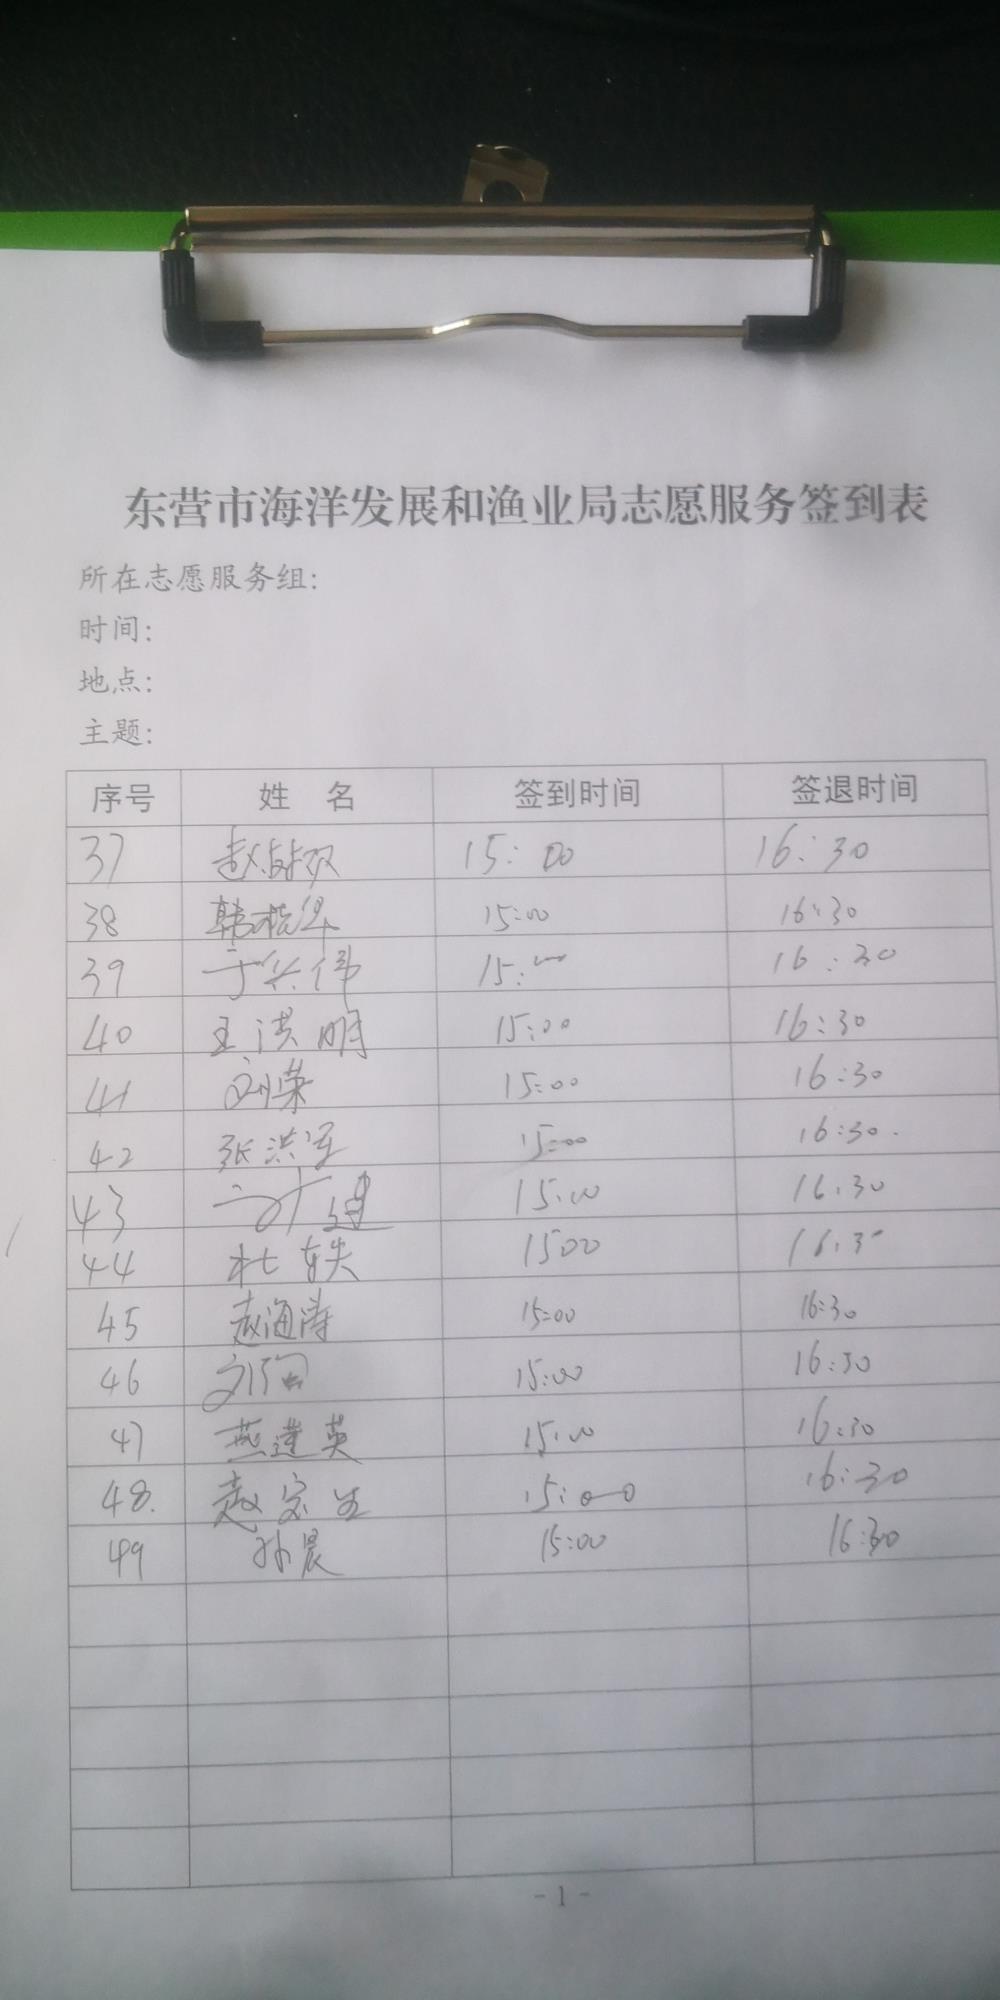 东营市海洋发展和渔业局志愿服务签到表
所在志愿服务组:
时间:
地点:
主题:
序号 姓 名 签到时间 签退时间
37 15:00 16:30
38 韩 华 15:00 16:30
39 于兴伟 15:00 16:30
40 王洪明 15:00 16:30
41 刘荣 15:00 16:30
42 张洪军 15:00 16:30.
43 15:00 16:30
44 杜轶 1500 16:30
45 赵海涛 15:00 16:30
46 刘 15:00 16:30
47 燕莲英 15:00 16:30
48. 赵宗生 15:00 16:30
49 孙晨 15:00 16:30
- 1 -